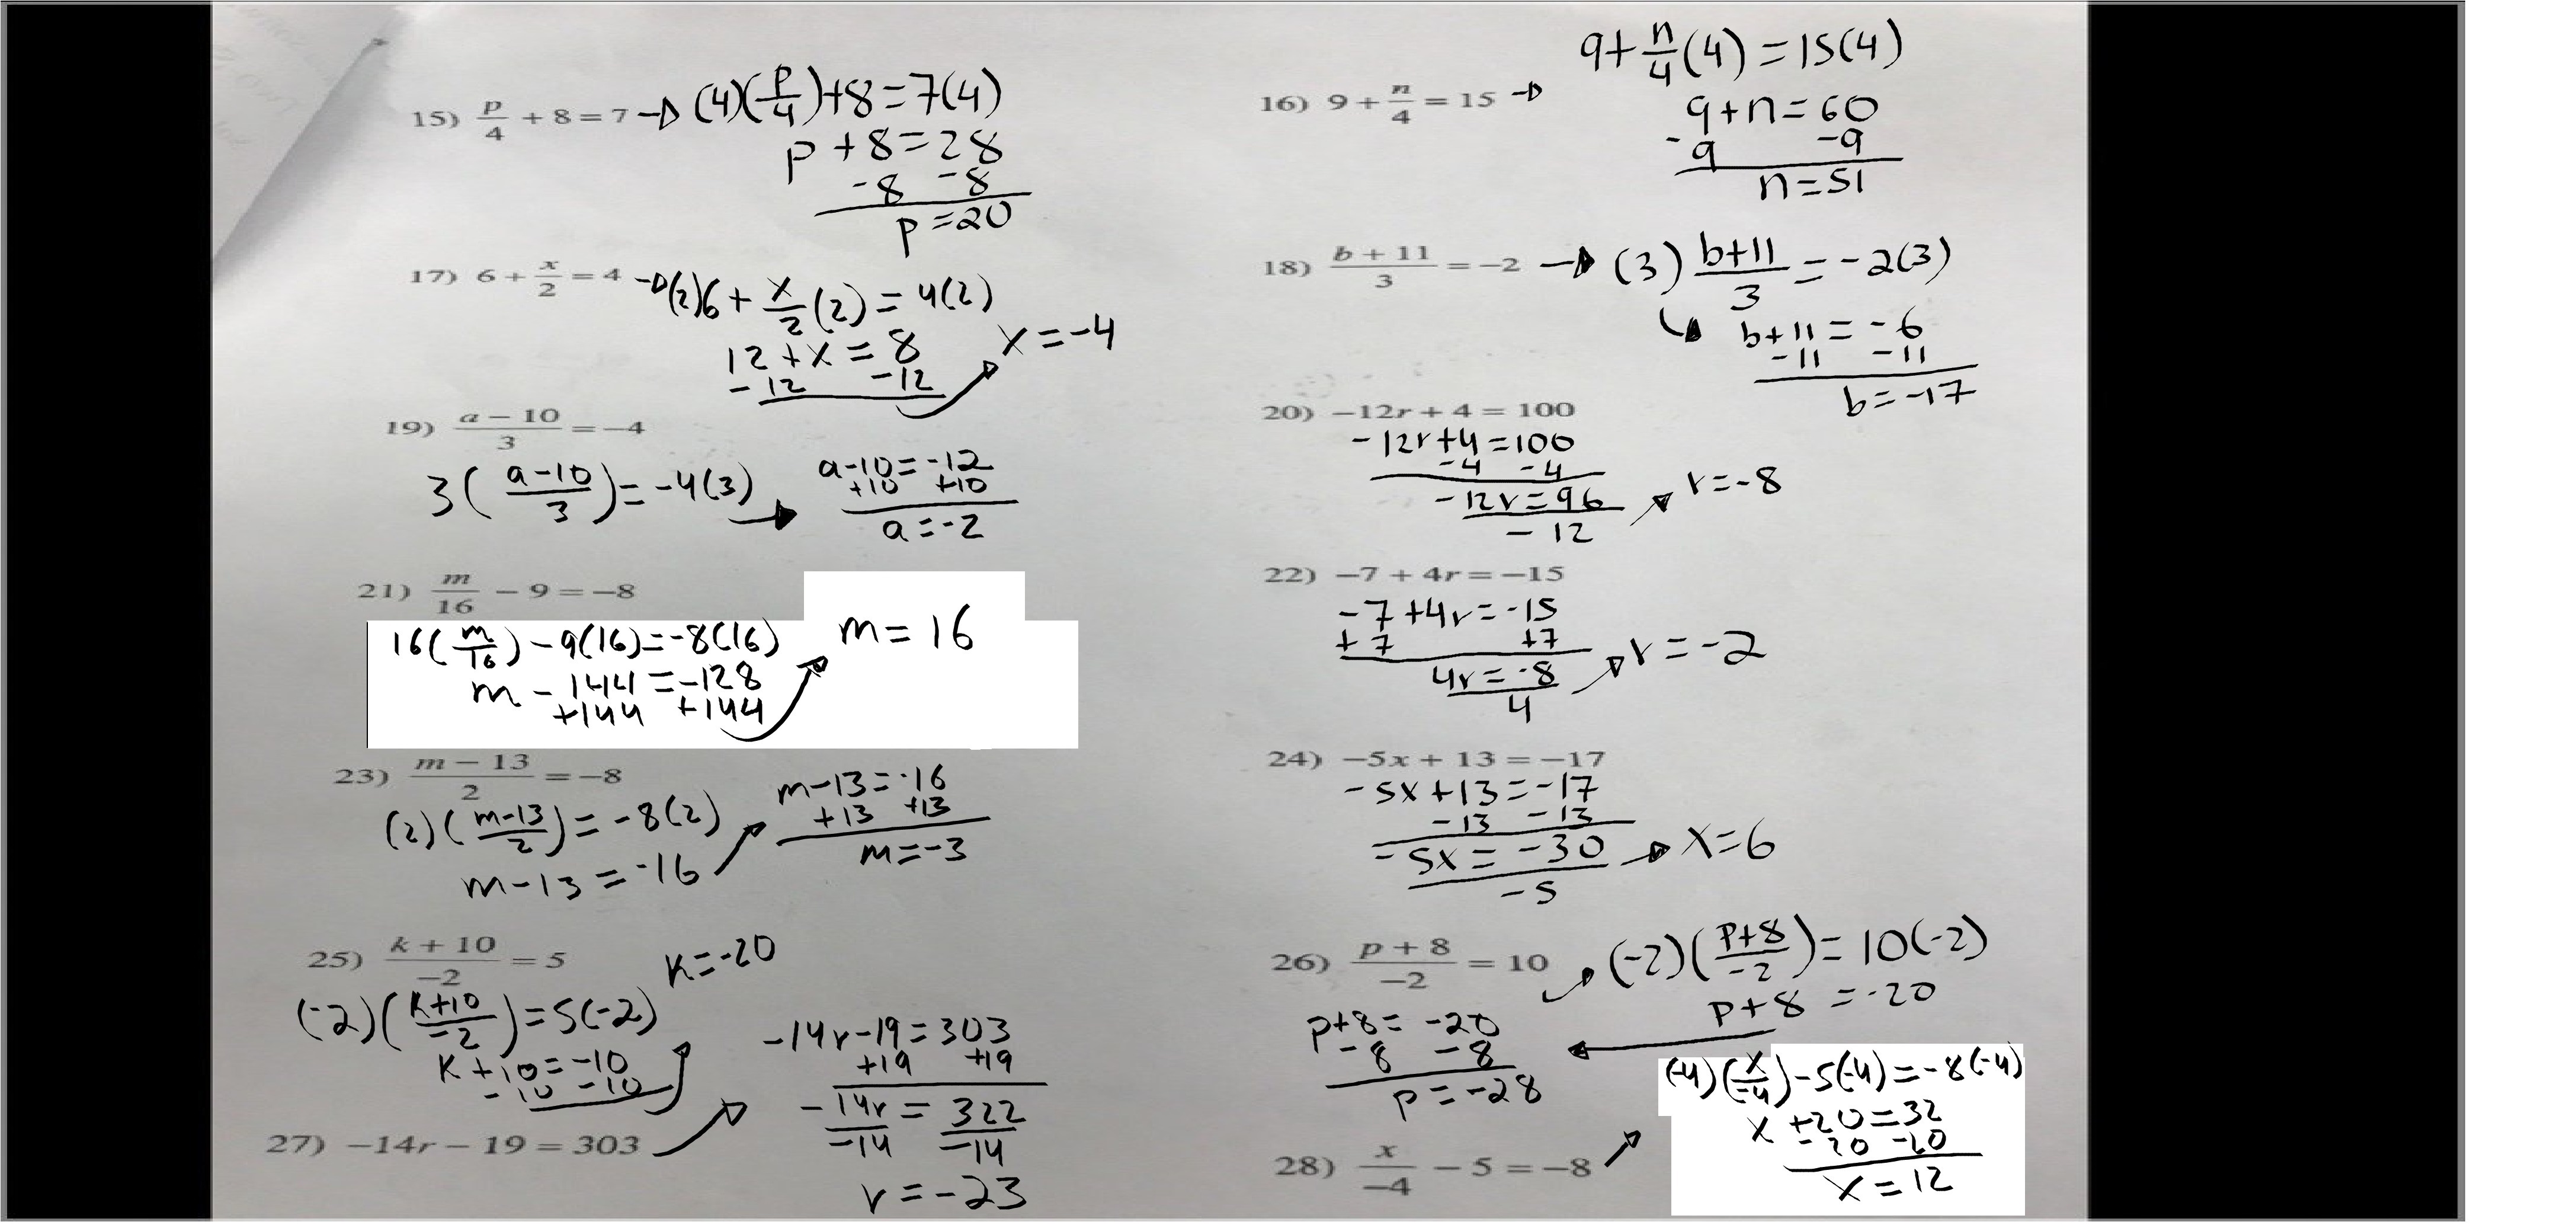 15) p/4 + 8 = 7 → (4)(p/4)+8=7(4)
p+8=28
-8 -8
p=20
16) 9 + n/4 = 15 →
9+n/4(4)=15(4)
9+n=60
-9 -9
n=51
17) 6 + x/2 = 4 → (2)6+x/2(2)=4(2)
12+x=8
-12 -12
x=-4
18) (b + 11)/3 = −2 → (3) (b+11)/3 = -2(3)
b+11=-6
-11 -11
b=-17
19) (a − 10)/3 = −4
3((a-10)/3)=-4(3) →
a-10=-12
+10 +10
a=-2
20) −12r + 4 = 100
-12r+4=100
-4 -4
-12r=96
-12
r=-8
21) m/16 − 9 = −8
16(m/16)-9(16)=-8(16)
m-144=-128
+144 +144
m=16
22) −7 + 4r = −15
-7+4r=-15
+7 +7
4r=-8
4
r=-2
23) (m − 13)/2 = −8
(2)((m-13)/2)=-8(2)
m-13=-16
m-13=-16
+13 +13
m=-3
24) −5x + 13 = −17
-5x+13=-17
-13 -13
-5x=-30
-5
x=6
25) (k + 10)/−2 = 5
(-2)((k+10)/-2)=5(-2)
k+10=-10
-10 -10
k=-20
26) (p + 8)/−2 = 10
(-2)((p+8)/-2)=10(-2)
p+8=-20
p+8=-20
-8 -8
p=-28
27) −14r − 19 = 303
-14r-19=303
+19 +19
-14r=322
-14 -14
r=-23
28) x/−4 − 5 = −8
(-4)(x/-4)-5(-4)=-8(-4)
x+20=32
-20 -20
x=12